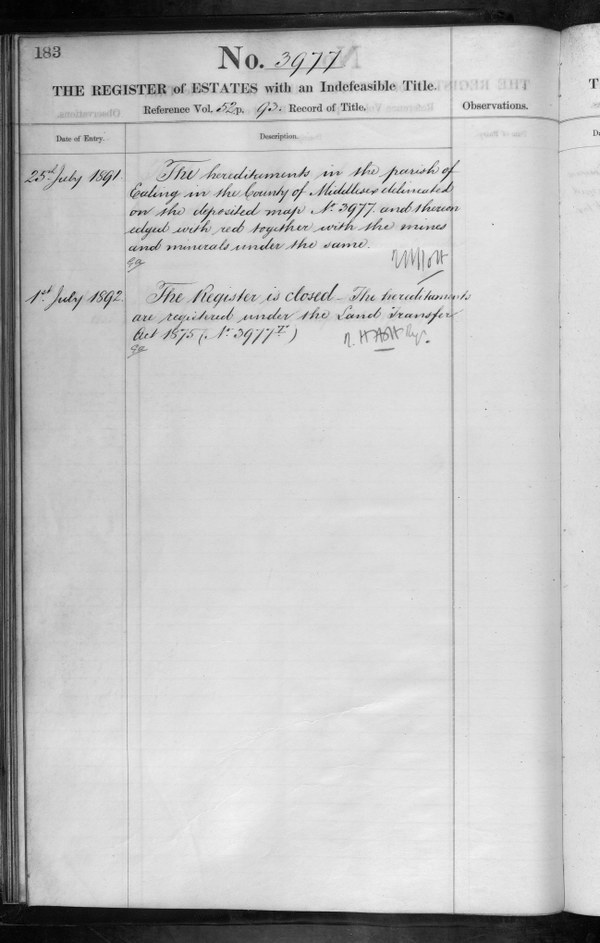 183
No. 3977
THE REGISTER of ESTATES with an Indefeasible Title.
Reference Vol. 52 p. 93. Record of Title.
Observations.
Date of Entry.
Description.
25th July 1891
The hereditements in the parish of
Ealing in the County of Middlesex delineated
on the deposited map No. 3977. and thereon
edged with red together with the mines
and minerals under the same.
1st July 1892
The Register is closed - The hereditaments
are registered under the Land Transfer
Act 1875 (No. 3977